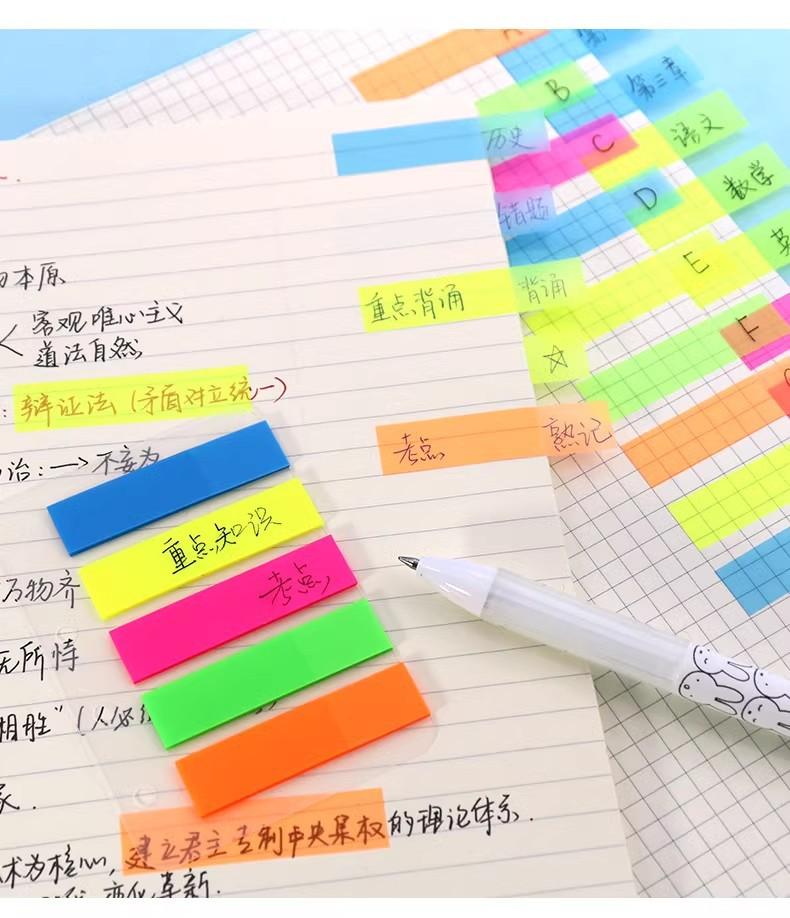 B
第三章
历史
C
语文
错题
D
数学
E
本原
客观唯心主义
道法自然
重点背诵
背诵
☆
F
辩证法（矛盾对立统一）
考点
熟记
治：→不妄为
重点知识
万物齐
考点
无所恃
相胜”（人
家.
建立君主专制中央集权的理论体系.
术为核心,
变化革新.